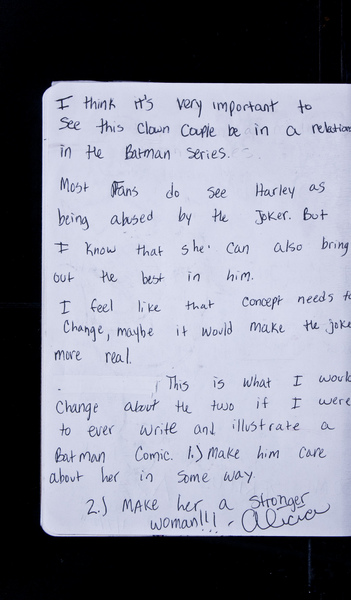 I think it's very important to
see this clown couple be in a relation
in the Batman series.
Most Fans do see Harley as
being abused by the Joker. But
I know that she can also bring
out the best in him.
I feel like that concept needs to
change, maybe it would make the joke
more real.
This is what I woul
change about the two if I were
to ever write and illustrate a
Batman Comic. 1.) Make him care
about her in some way.
2.) MAKE her a stronger
woman!!! - Alicia